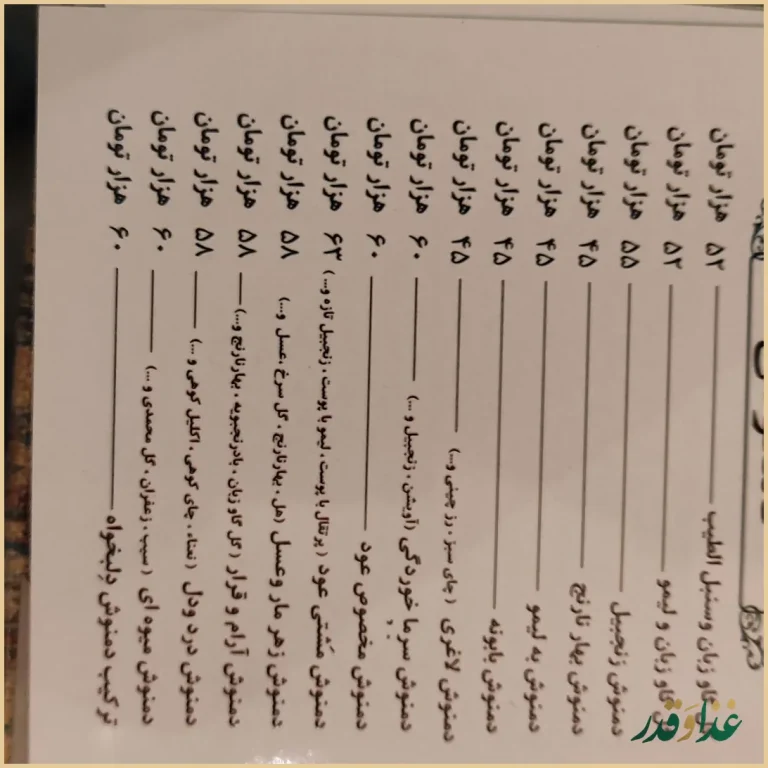 گاو زبان وسنبل الطیب ۵۲ هزار تومان
گاو زبان و لیمو ۵۲ هزار تومان
دمنوش زنجبیل ۵۵ هزار تومان
دمنوش بهار نارنج ۴۵ هزار تومان
دمنوش به لیمو ۴۵ هزار تومان
دمنوش بابونه ۴۵ هزار تومان
دمنوش لاغری (چای سبز ، رز چینی و...) ۴۵ هزار تومان
دمنوش سرما خوردگی (آویشن ، زنجبیل و ...) ۶۰ هزار تومان
دمنوش مخصوص عود ۶۰ هزار تومان
دمنوش مَشتی عود (پرتقال با پوست ، لیمو با پوست ، زنجبیل تازه و...) ۶۳ هزار تومان
دمنوش زهر مار وعسل (هل ، بهارنارنج ، گل سرخ ،عسل و...) ۵۸ هزار تومان
دمنوش آرام و قرار (گل گاو زبان ، بادرنجبویه ، بهارنارنج و...) ۵۸ هزار تومان
دمنوش درد ودل (نعناء ، چای کوهی ، اکلیل کوهی و ...) ۵۸ هزار تومان
دمنوش میوه ای (سیب ، زعفران ، گل محمدی و ...) ۶۰ هزار تومان
ترکیب دمنوش دِلبخواه ۶۰ هزار تومان
غذا وَ قدر